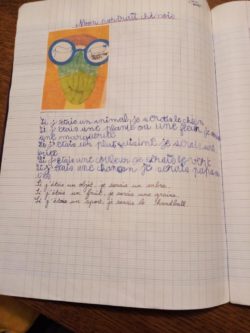 Mon portrait chinois
Si j'étais un animal, je serais le chien
Si j'étais une plante ou une fleur je serais
une marguerite
Si j'étais un plat cuisiné je serais une
Si j'étais une couleur je serais le vert
Si j'étais une chanson je serais papa
Si j'étais un objet, je serais un
Si j'étais un fruit, je serais une
Si j'étais un sport, je serais le handball